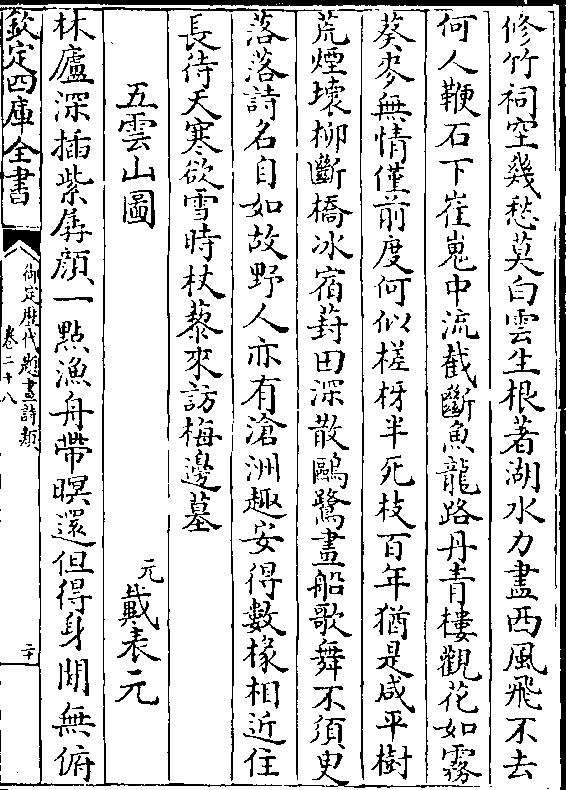 修竹祠空幾愁莫白雲生根著湖水力盡西風飛不去
何人鞭石下崔嵬中流截斷魚龍路丹青樓觀花如霧
葵麥無情僅前度何似槎枒半死枝百年猶是咸平樹
荒煙壞柳斷橋冰宿葑田深散鷗鷺畫船歌舞不須臾
落落詩名自如故野人亦有滄洲趣安得數椽相近住
長待天寒欲雪時杖藜來訪梅邊墓
五雲山圖
元戴表元
林廬深插紫孱顔一點漁舟帶暝還但得身閒無俯
欽定四庫全書
御定歷代題畫詩類
卷二十八
二十